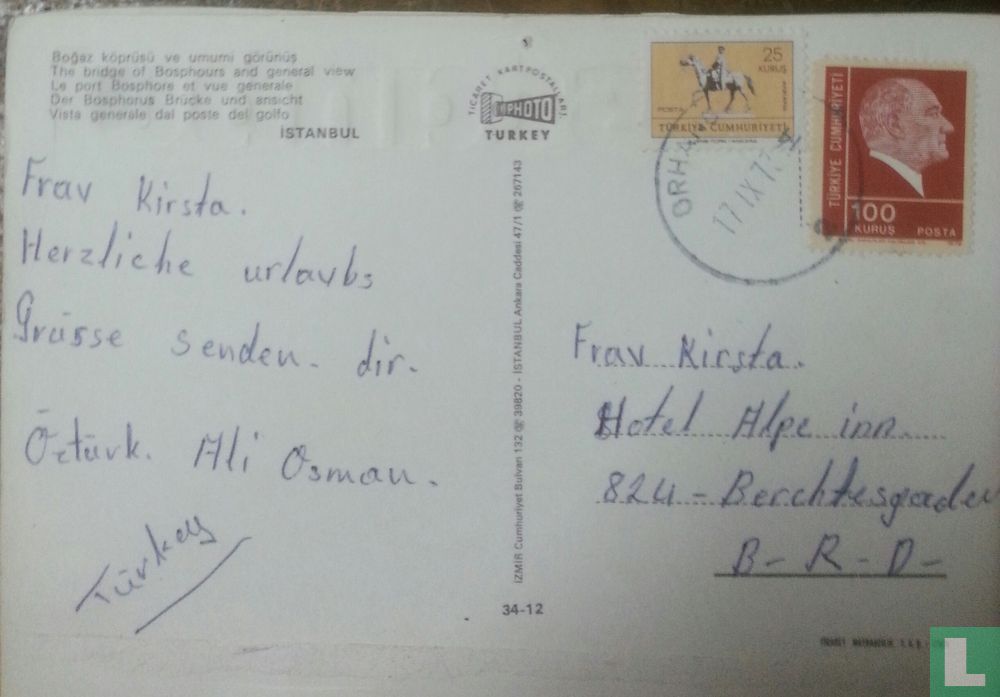 Boğaz köprüsü ve umumi görünüş
The bridge of Bosphours and general view
Le port Bosphore et vue générale
Der Bosphorus Brücke und ansicht
Vista generale dal poste del golfo
İSTANBUL
TİCARET KARTPOSTALLARI
PHOTO
TURKEY
25
KURUŞ
POSTA
TÜRKİYE CUMHURİYETİ
TÜRKİYE CUMHURİYETİ
100
KURUŞ
POSTA
17 IX 7
Frav Kirsta.
Herzliche urlavbs
Grüsse senden. dir.
Öztürk. Ali Osman.
Türkey
İZMİR Cumhuriyet Bulvarı 132 ☏ 39820 - İSTANBUL Ankara Caddesi 47/1 ☏ 267143
34-12
Frav Kirsta.
Hotel Alpe inn.
824 - Berchtesgaden
B- R- D-
L